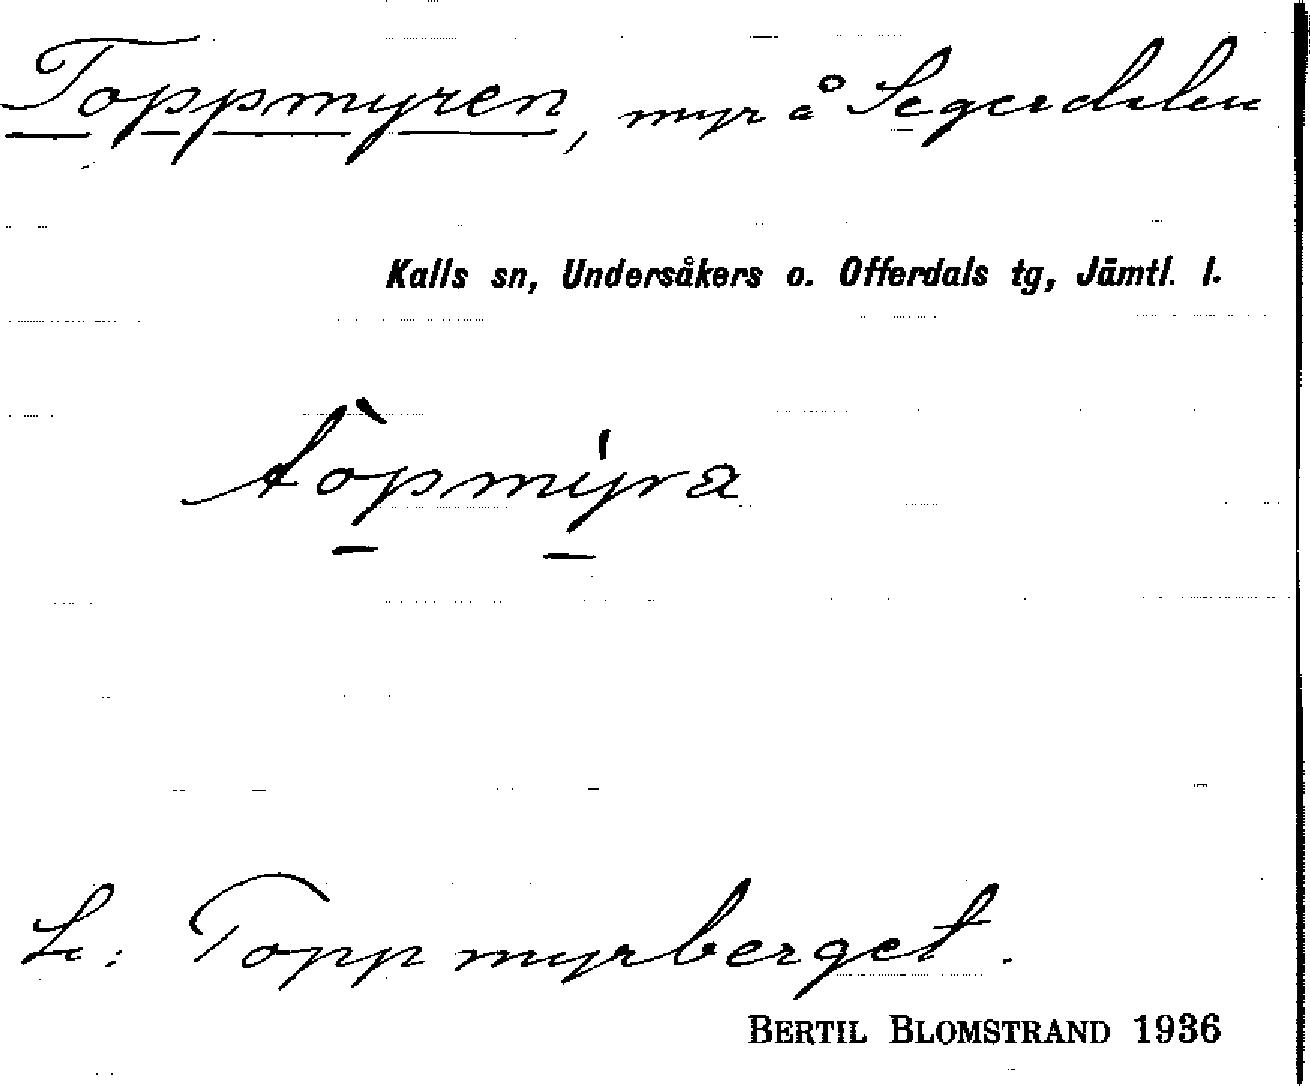 Toppmyren, myr å Segerdalen
Kalls sn, Undersåkers o. Offerdals tg, Jämtl. l.
tòpmýra
L: Toppmyrberget.
BERTIL BLOMSTRAND 1936